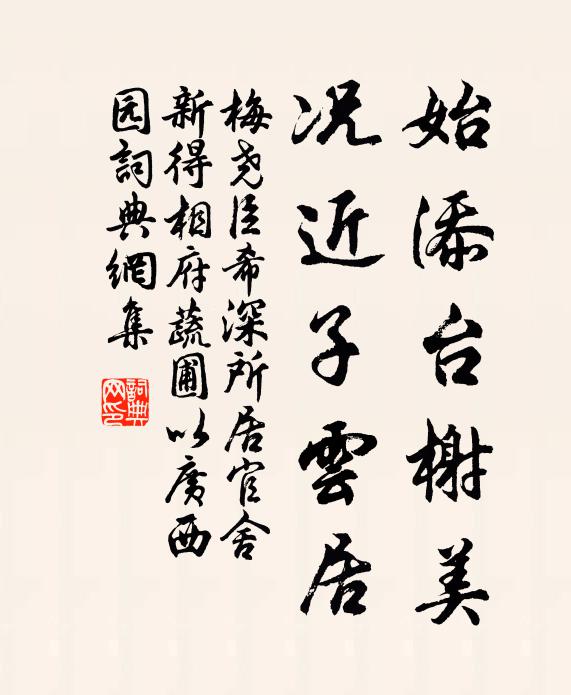 始添台榭美
况近子雲居
梅尧臣希深所居官舍
新得相府蔬圃以廣西
园詞典網集
詞典网印